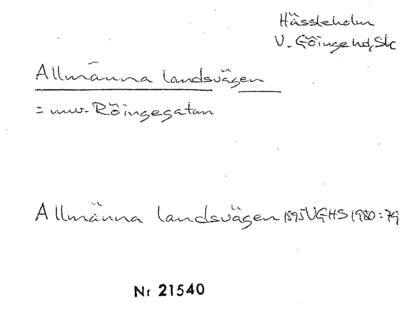 Hässleholm
V. Göinge hd, Sk
Allmänna landsvägen
= nuv. Röingegatan
Allmänna landsvägen 1895 VGHS 1980:79
Nr 21540